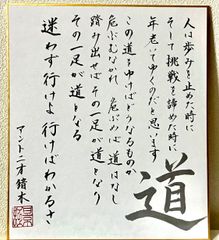 人は歩みを止めた時に
そして挑戦を諦めた時に
年老いてゆくのだと思います
この道をゆけばどうなるものか
危ぶむなかれ 危ぶめば道はなし
踏み出せばその一足が道となり
その一足が道となる
迷わず行けよ 行けばわかるさ
アントニオ猪木
道